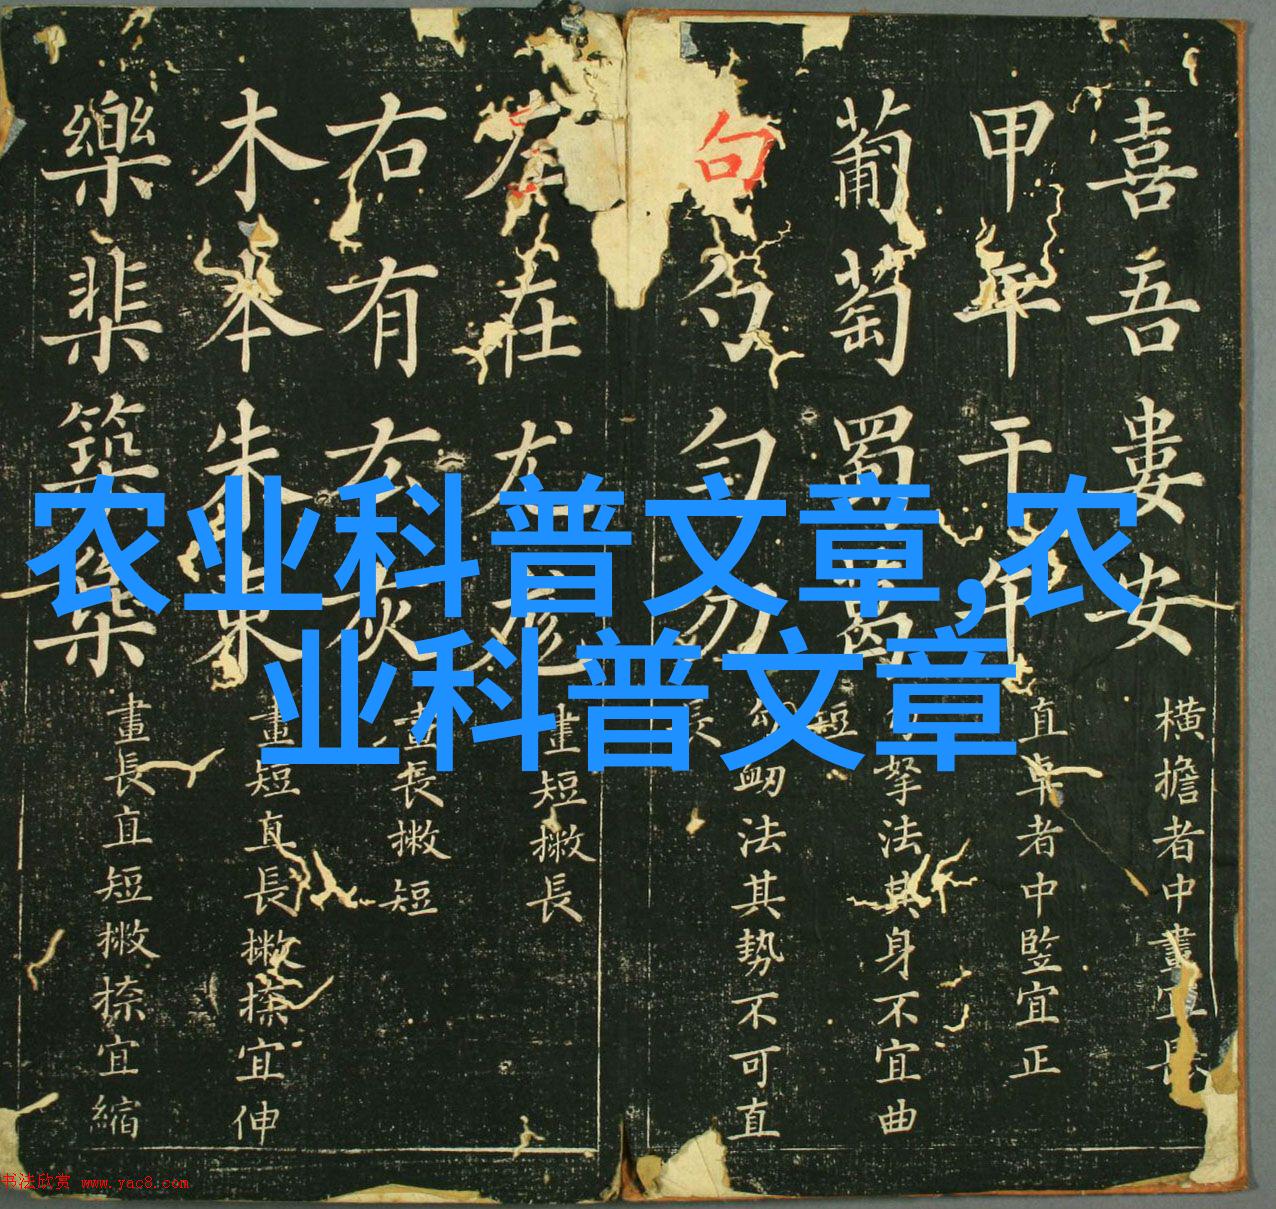 喜吾婁安橫擔者中畫宜長
甲平干午直卓者中竪宜正
葡萄蜀葛拏法其身不宜曲
句勹匀勿法其勢不可直
左在尤畫短撇長
右有灰畫長撇短
木本朱東畫短直長撇捺宜伸
樂棐築畫長直短撇捺宜縮
农业科普文章,农
业科普文章
书法欣赏 www.yac8.com